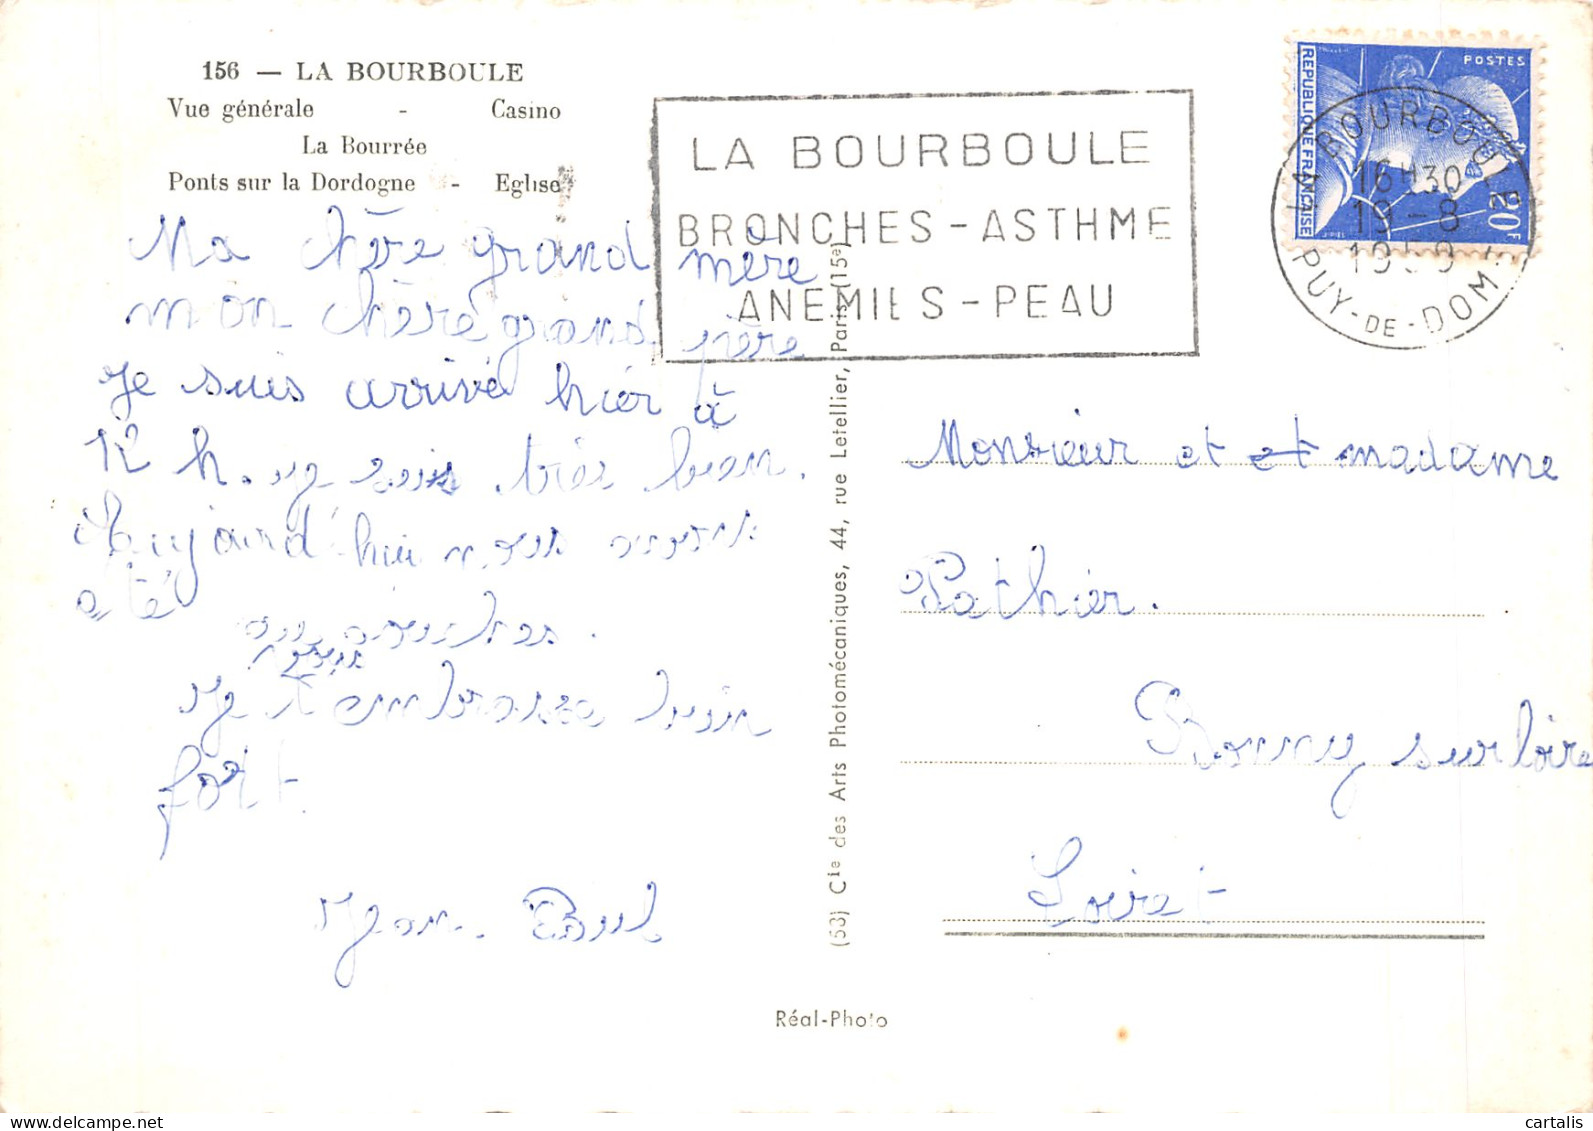 156 — LA BOURBOULE
Vue générale - Casino
La Bourrée
Ponts sur la Dordogne - Eglise
Ma chère grand mère
mon chère grand père
Je suis arrivé hier à
12 h. je suis très bien.
aujourd'hui nous avons
été
aux douches.
nous
Je t'embrasse bien
fort
Jean Paul
LA BOURBOULE
BRONCHES - ASTHME
ANEMIES - PEAU
POSTES
REPUBLIQUE FRANÇAISE
20F
LA BOURBOULE
16H30
19-8
1959
PUY-DE-DOME
(53) Cie des Arts Photomécaniques, 44, rue Letellier, Paris (15e)
Monsieur et et madame
Pathier.
Bonny sur loire
Loiret
Réal-Photo
cartalis
www.delcampe.net